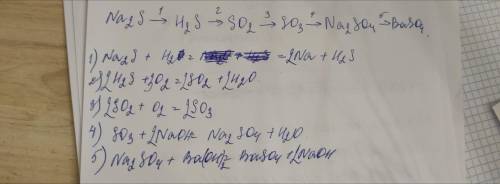 Na₂S →¹ H₂S →² SO₂ →³ SO₃ →⁴ Na₂SO₄ →⁵ BaSO₄.
1) Na₂S + H₂ = 2Na + H₂S
2) 2H₂S + 3O₂ = 2SO₂ + 2H₂O
3) 2SO₂ + O₂ = 2SO₃
4) SO₃ + 2NaOH = Na₂SO₄ + H₂O
5) Na₂SO₄ + Ba(OH)₂ = BaSO₄ + 2NaOH